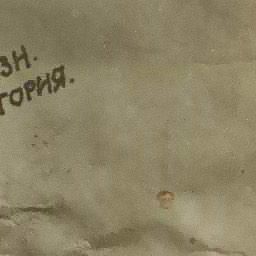 ЗН.
ТОРИЯ.